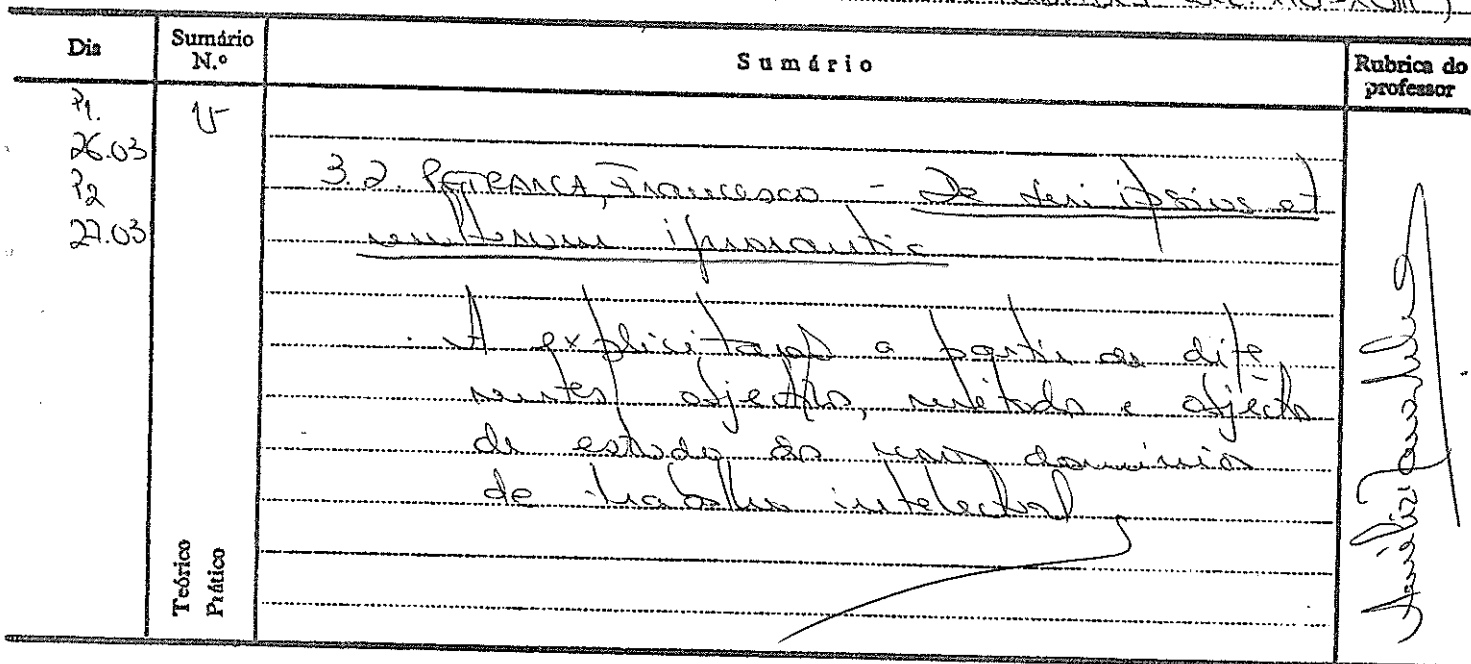 Dia
Sumário N.º
Sumário
Rubrica do professor
P1.
26.03
P2
27.03
15
3.2. PETRARCA, Francesco - De sui ipsius et
multorum ignorantia
. A explicitação a partir de dife
rentes objectos, método e objecto
de estudo do domínio
de trabalho intelectual
Teórico
Prático